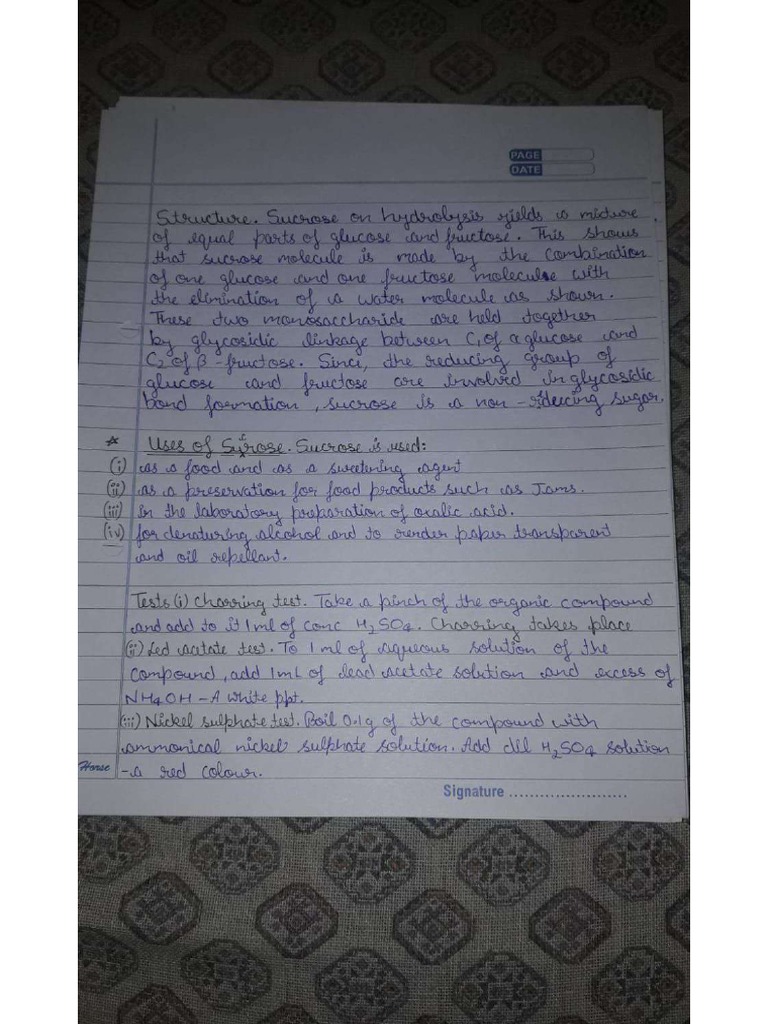 PAGE
DATE
Structure. Sucrose on hydrolysis yields a mixture
of equal parts of glucose and fructose. This shows
that sucrose molecule is made by the combination
of one glucose and one fructose molecule with
the elimination of a water molecule as shown.
These two monosaccharide are held together
by glycosidic linkage between C1 of α glucose and
C2 of β-fructose. Since, the reducing group of
glucose and fructose are involved in glycosidic
bond formation, sucrose is a non-reducing sugar.
* Uses of Sucrose. Sucrose is used:
(i) as a food and as a sweetening agent
(ii) as a preservation for food products such as Jams.
(iii) in the laboratory preparation of oxalic acid.
(iv) for denaturing alcohol and to render paper transparent
and oil repellant.
Tests (i) Charring test. Take a pinch of the organic compound
and add to it 1 ml of conc H2SO4. Charring takes place
(ii) Led acetate test. To 1 ml of aqueous solution of the
compound, add 1 mL of lead acetate solution and excess of
NH4OH - A white ppt.
(iii) Nickel sulphate test. Boil 0.1g of the compound with
ammonical nickel sulphate solution. Add dil H2SO4 solution
- a red colour.
Horse
Signature ........................